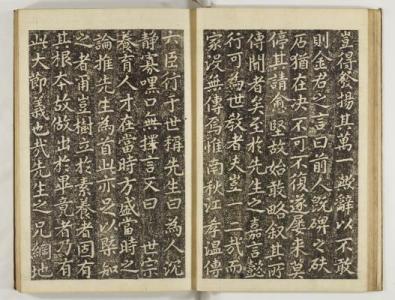 豈得發揚其萬一哉辭以不敢
則金君之言曰前人旣碑之砆
石猶在决不可不復遂屢来莫
停其請兪堅故始敢略叙其所
傳聞者矣至於先生之嘉言懿
行可為世敎者夫豈一二哉而
家没無傳焉惟南秋江孝温傳
六臣行于世稱先生曰為人沉
静寡嘿口無擇言又曰 世宗
養育人才在當時方盛當時之
論推先生為首此亦足以槩知
之者甫豈樹立於素養者固有
其根本故做出於畢竟者乃有
此大節義也哉先生之兄綱地